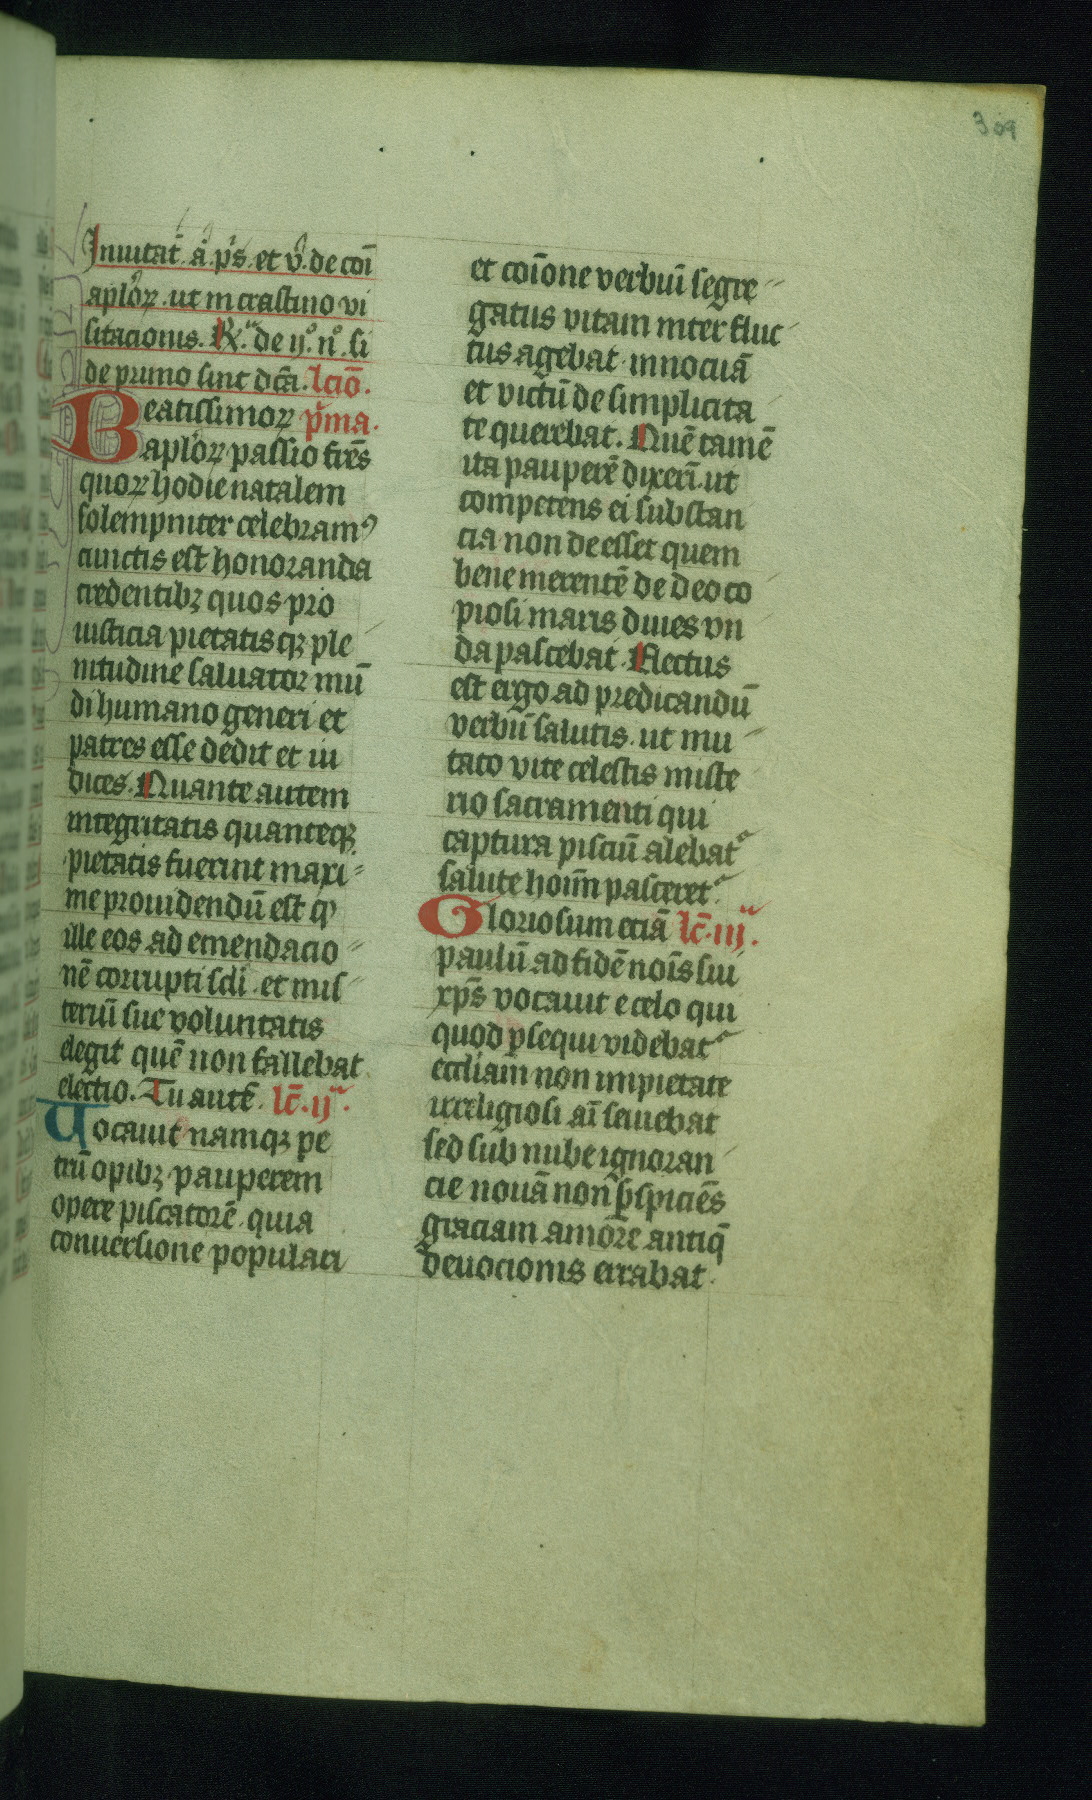 309
Inuitat̄. ā. p̄s. et v̄. de com̄
aplōꝝ. ut in crastino vi
sitacionis. ℟. de ij°. n°. si
de primo sint dc̄a. lcīo.
Beatissimoꝝ pͥma.
aplōꝝ passio frēs
quoꝝ hodie natalem
solempniter celebramꝰ
cunctis est honoranda
credentibꝫ quos pro
iusticia pietatisqꝫ ple
nitudine saluator mū
di humano generi et
patres esse dedit et iu
dices. Quante autem
integritatis quanteqꝫ
pietatis fuerint maxi
me prouidendū est qꝫ
ille eos ad emendacio
nē corrupti sc̄li et mis
teriū sue voluntatis
elegit quē non fallebat
electio. Tu autē. lc̄. ijᵃ.
Uocauit namqꝫ pe
trū opibꝫ pauperem
opere piscatorē quia
conuersione populari
et com̄one verbuī segre
gatus vitam inter fluc
tus agebat innocuā
et victū de simplicita
te querebat. Quē tamē
ita pauperē dixerī. ut
competens ei substan
cia non deesset quem
bene merentē de deo co
piosi maris diues vn
da pascebat. Electus
est ergo ad predicandū
verbū salutis. ut mu
tato vite celestis miste
rio sacramenti qui
captura pisciū alebatᷣ
salute hoīm pasceretᷣ.
Gloriosum eciā lc̄. iijᵃ.
paulū ad fidē noīs sui
xp̄s vocauit e celo qui
quod ꝑsequi videbatᷣ
eccliam non impietate
irreligiosi aī seuiebat
sed sub nube ignoran
cie nouā non ꝑspiciēs
graciam amore antiq̄
deuocionis errabat.